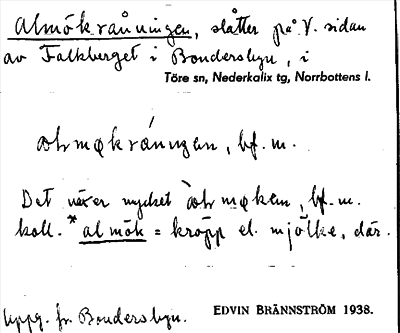 Almökrånningen, slåtter på V. sidan
av Falkberget i Bondersbyn, i
Töre sn, Nederkalix tg, Norrbottens l.
bf. m.
Det växer mycket bf. m.
koll. *almök = kröpp el. mjölke, där.
Uppg. fr. Bondersbyn.
EDVIN BRÄNNSTRÖM 1938.